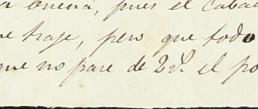 buena, pues el caba
traje, pero que todo
que no pare de 2 el po